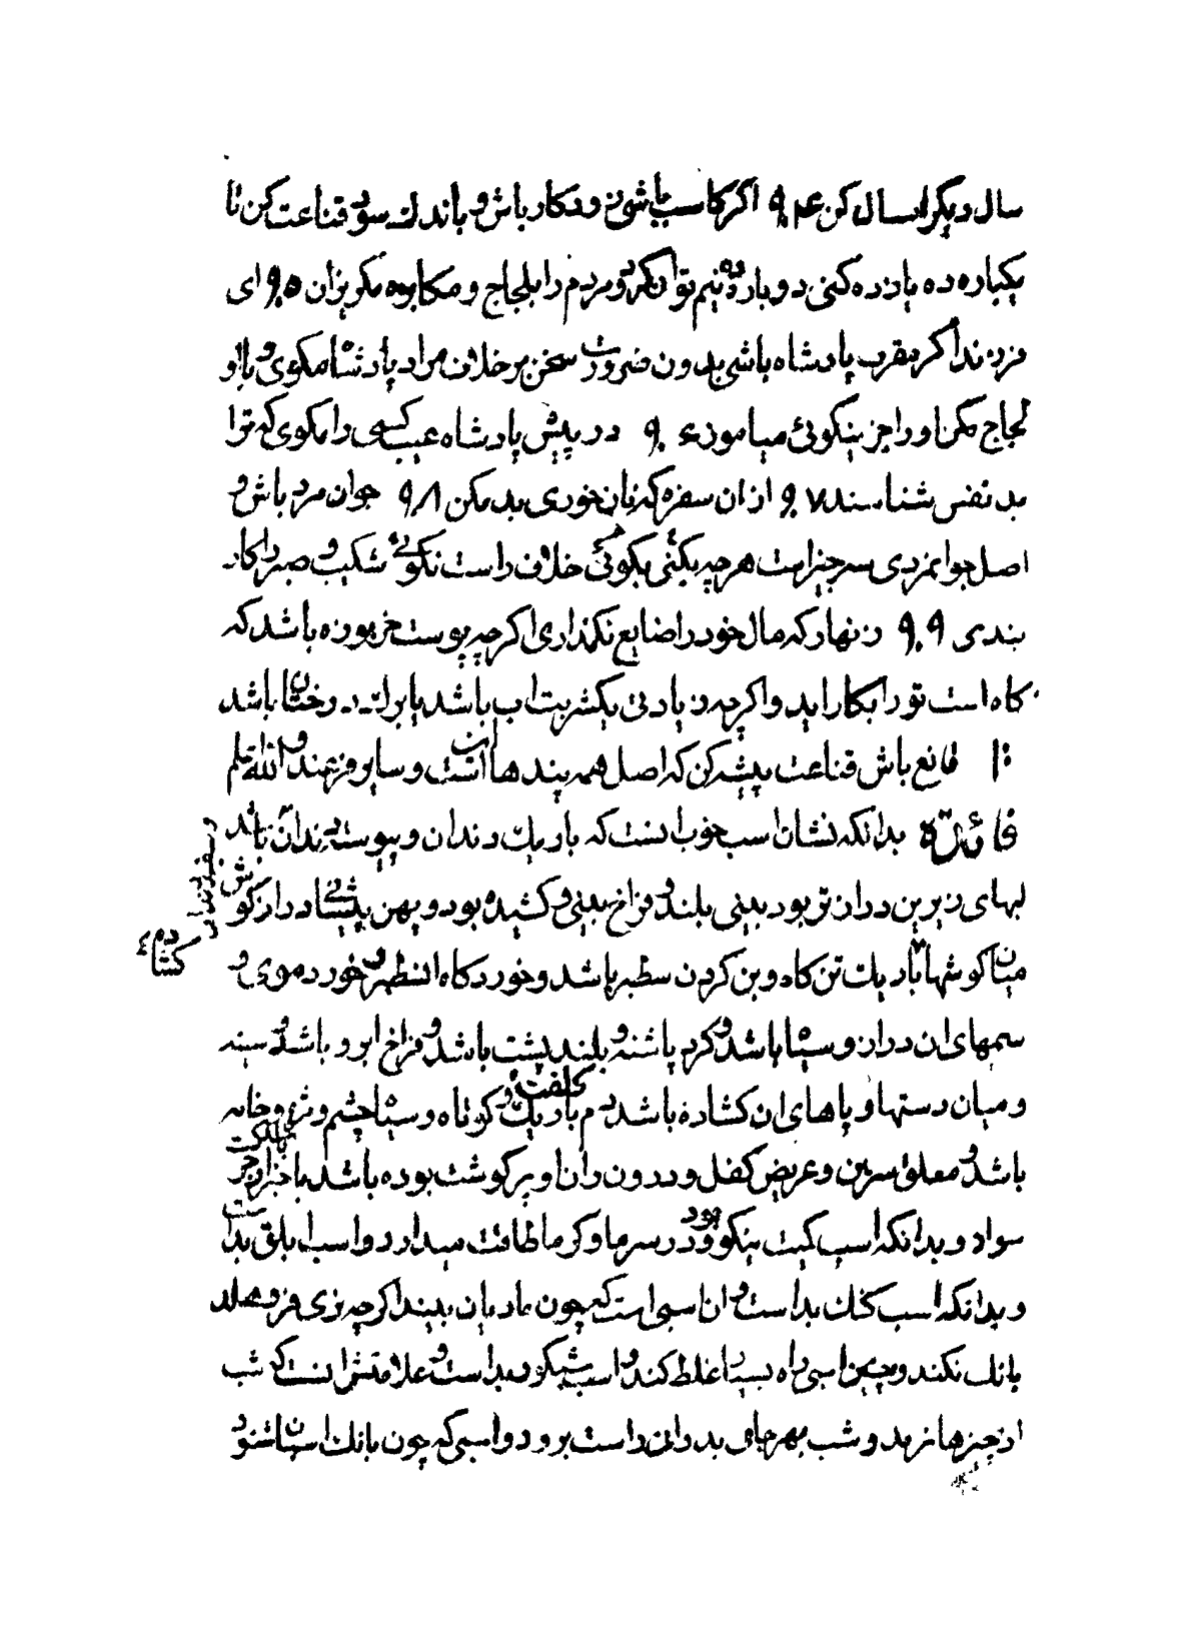 سال دیکر اسال کن ۹۰۴ اکر کاسب باشی زودکار باش و باندک سود قناعت کن تا
یکباره ده یازده کنی دو بار ده نیم توان کرد و مردم را بلجاج و مکابره مکریزان ۹۰۵ ای
فرزند اکر مقرب پادشاه باشی بدون ضرورت سخن بر خلاف مراد پادشاه مکوی و با او
لجاج مکن او را جز بنیکوئی میاموز ۹۰۶ در پیش پادشاه عیب کسی را مکوی که ترا
بد نفس شناسند ۹۰۷ از ان سفره که نان خوری بد مکن ۹۰۸ جوان مرد باش و
اصل جوانمردی سه چیز است هر چه بکنی بکوئی خلاف راست نکوئی شکیب و صبر را کار
بندی ۹۰۹ زنهار که مال خود را ضایع نکذاری اکر چه پوست خربوزه باشد که
کاه است تو را بکار اید و اکر چه زیادتی یکشربت اب باشد یا برای درختان باشد
قانع باش قناعت پیشه کن که اصل همه پندها انست و سایر فرعند و الله اعلم
فائدة بدانکه نشان اسب خوب انست که باریک دندان و پیوسته دندان باشد
لبهای زیرین درازتر بود بینی بلند و فراخ بینی و کشیده بود و پهن پیشانی دراز کوش
میان کوشها باریک تن کاه و بن کردن سطبر باشد و خورد کاه انسطبر و خورد موی و
سمهای ان دراز و سیاه باشد و کرد پاشنه و بلند پشت باشد و فراخ ابرو باشد و سینه
و میان دستها و پاهای ان کشاده باشد دم باریک و کوتاه و سیاه چشم و مژه و خایه
باشد و معلق سرین و عریض کفل و درون ران او پر کوشت بوده باشد با خبر از حرکت
سواد و بدانکه اسب کمیت نیکو بود و در سرما و کرما طاقت میدارد و اسب ابلق بد است
و بدانکه اسب کنک بد است و ان اسبی است که چون مادیان بیند اکر چه نری فرو هلد
بانک نکند و چنین اسبی راه بسیار غلط کند و اسب شبکور بد است و علامتش انست که شب
از چیزها نرمد و شب بهر جای بد رانی راست برود و اسبی که چون بانک اسبان شنود